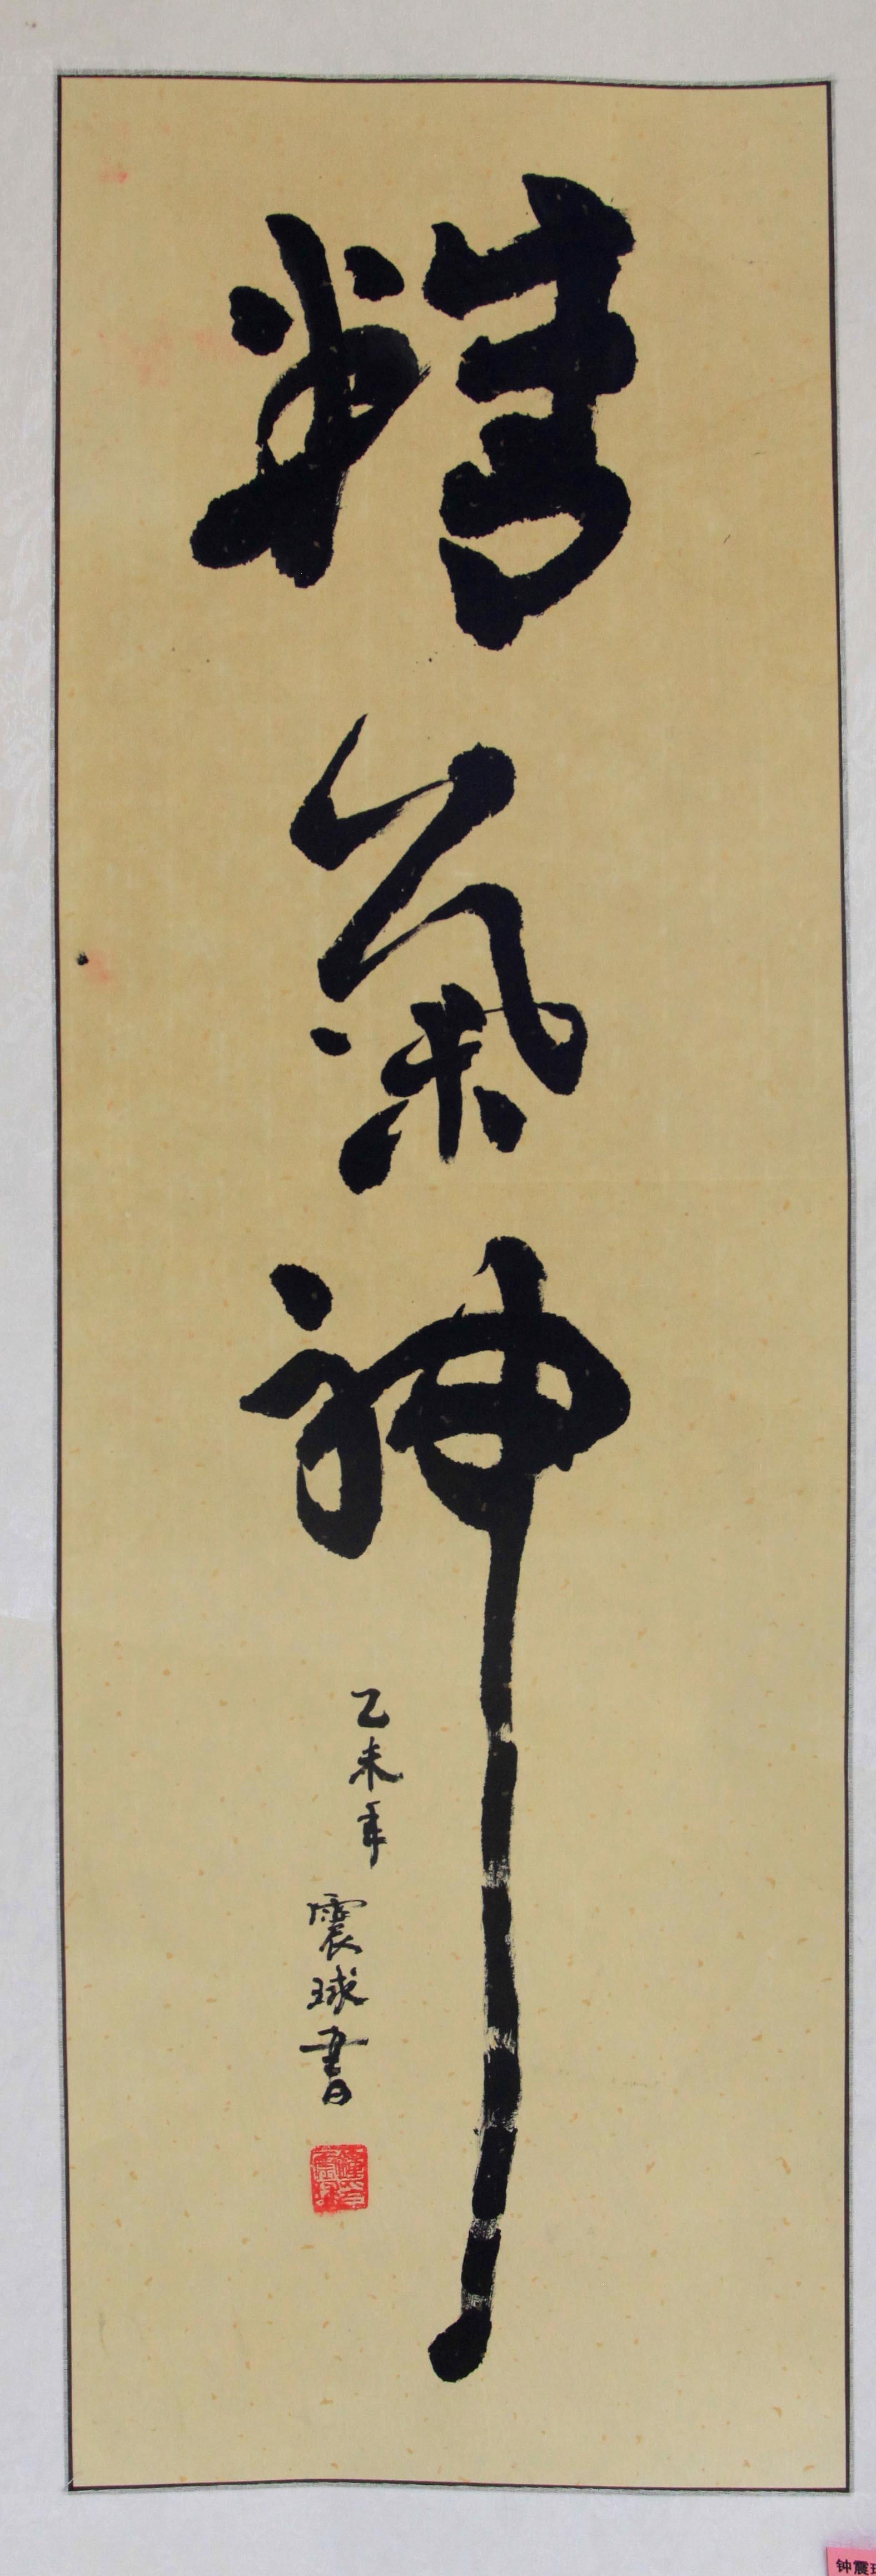 精氣神
乙未年
震球書
钟震球